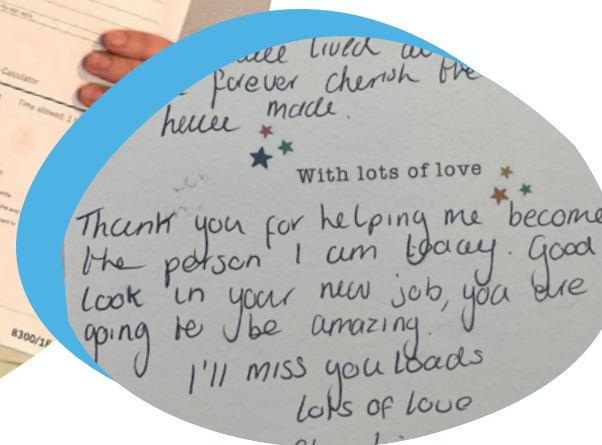 Calculator
Time allowed: 1
8300/1F
lived
forever cherish the
have made.
With lots of love
Thank you for helping me become
the person I am today. Good
look in your new job, you are
going to be amazing.
I'll miss you loads
lots of love